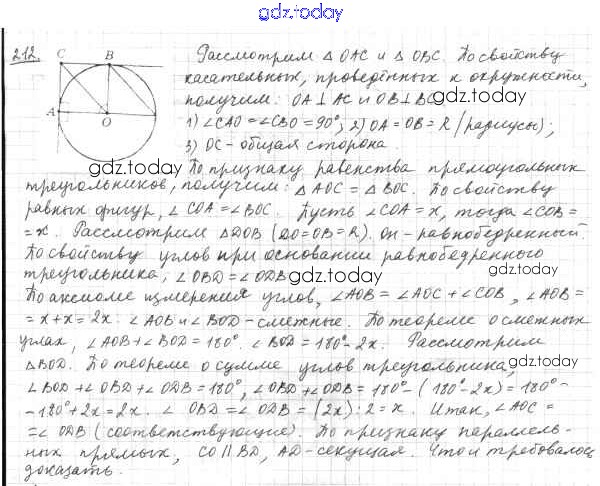 gdz.today
212.
C B
A O
Рассмотрим △ OAC и △ OBC. По свойству
касательных, проведённых к окружности,
получим: OA⊥AC и OB⊥BC
gdz.today
1) ∠CAO=∠CBO=90°; 2) OA=OB=R (радиусы);
3) OC-общая сторона.
gdz.today
По признаку равенства прямоугольных
треугольников, получим: △AOC = △BOC. По свойству
равных фигур, ∠COA=∠BOC. Пусть ∠COA=x, тогда ∠COB=
=x. Рассмотрим △DOB (DO=OB=R). Он-равнобедренный.
По свойству углов при основании равнобедренного
треугольника, ∠OBD=∠ODB
gdz.today
По аксиоме измерения углов, ∠AOB=∠AOC+∠COB, ∠AOB=
=x+x=2x. ∠AOB и ∠BOD-смежные. По теореме о смежных
углах, ∠AOB+∠BOD=180°. ∠BOD=180°-2x. Рассмотрим
△BOD. По теореме о сумме углов треугольника,
gdz.today
∠BOD+∠OBD+∠ODB=180°, ∠OBD+∠ODB=180°-(180°-2x)=180°-
-180°+2x=2x. ∠OBD=∠ODB=(2x):2=x. Итак, ∠AOC=
=∠ODB (соответствующие). По признаку параллель-
ных прямых, CO∥BD, AD-секущая. Что и требовалось
доказать.
gdz.today